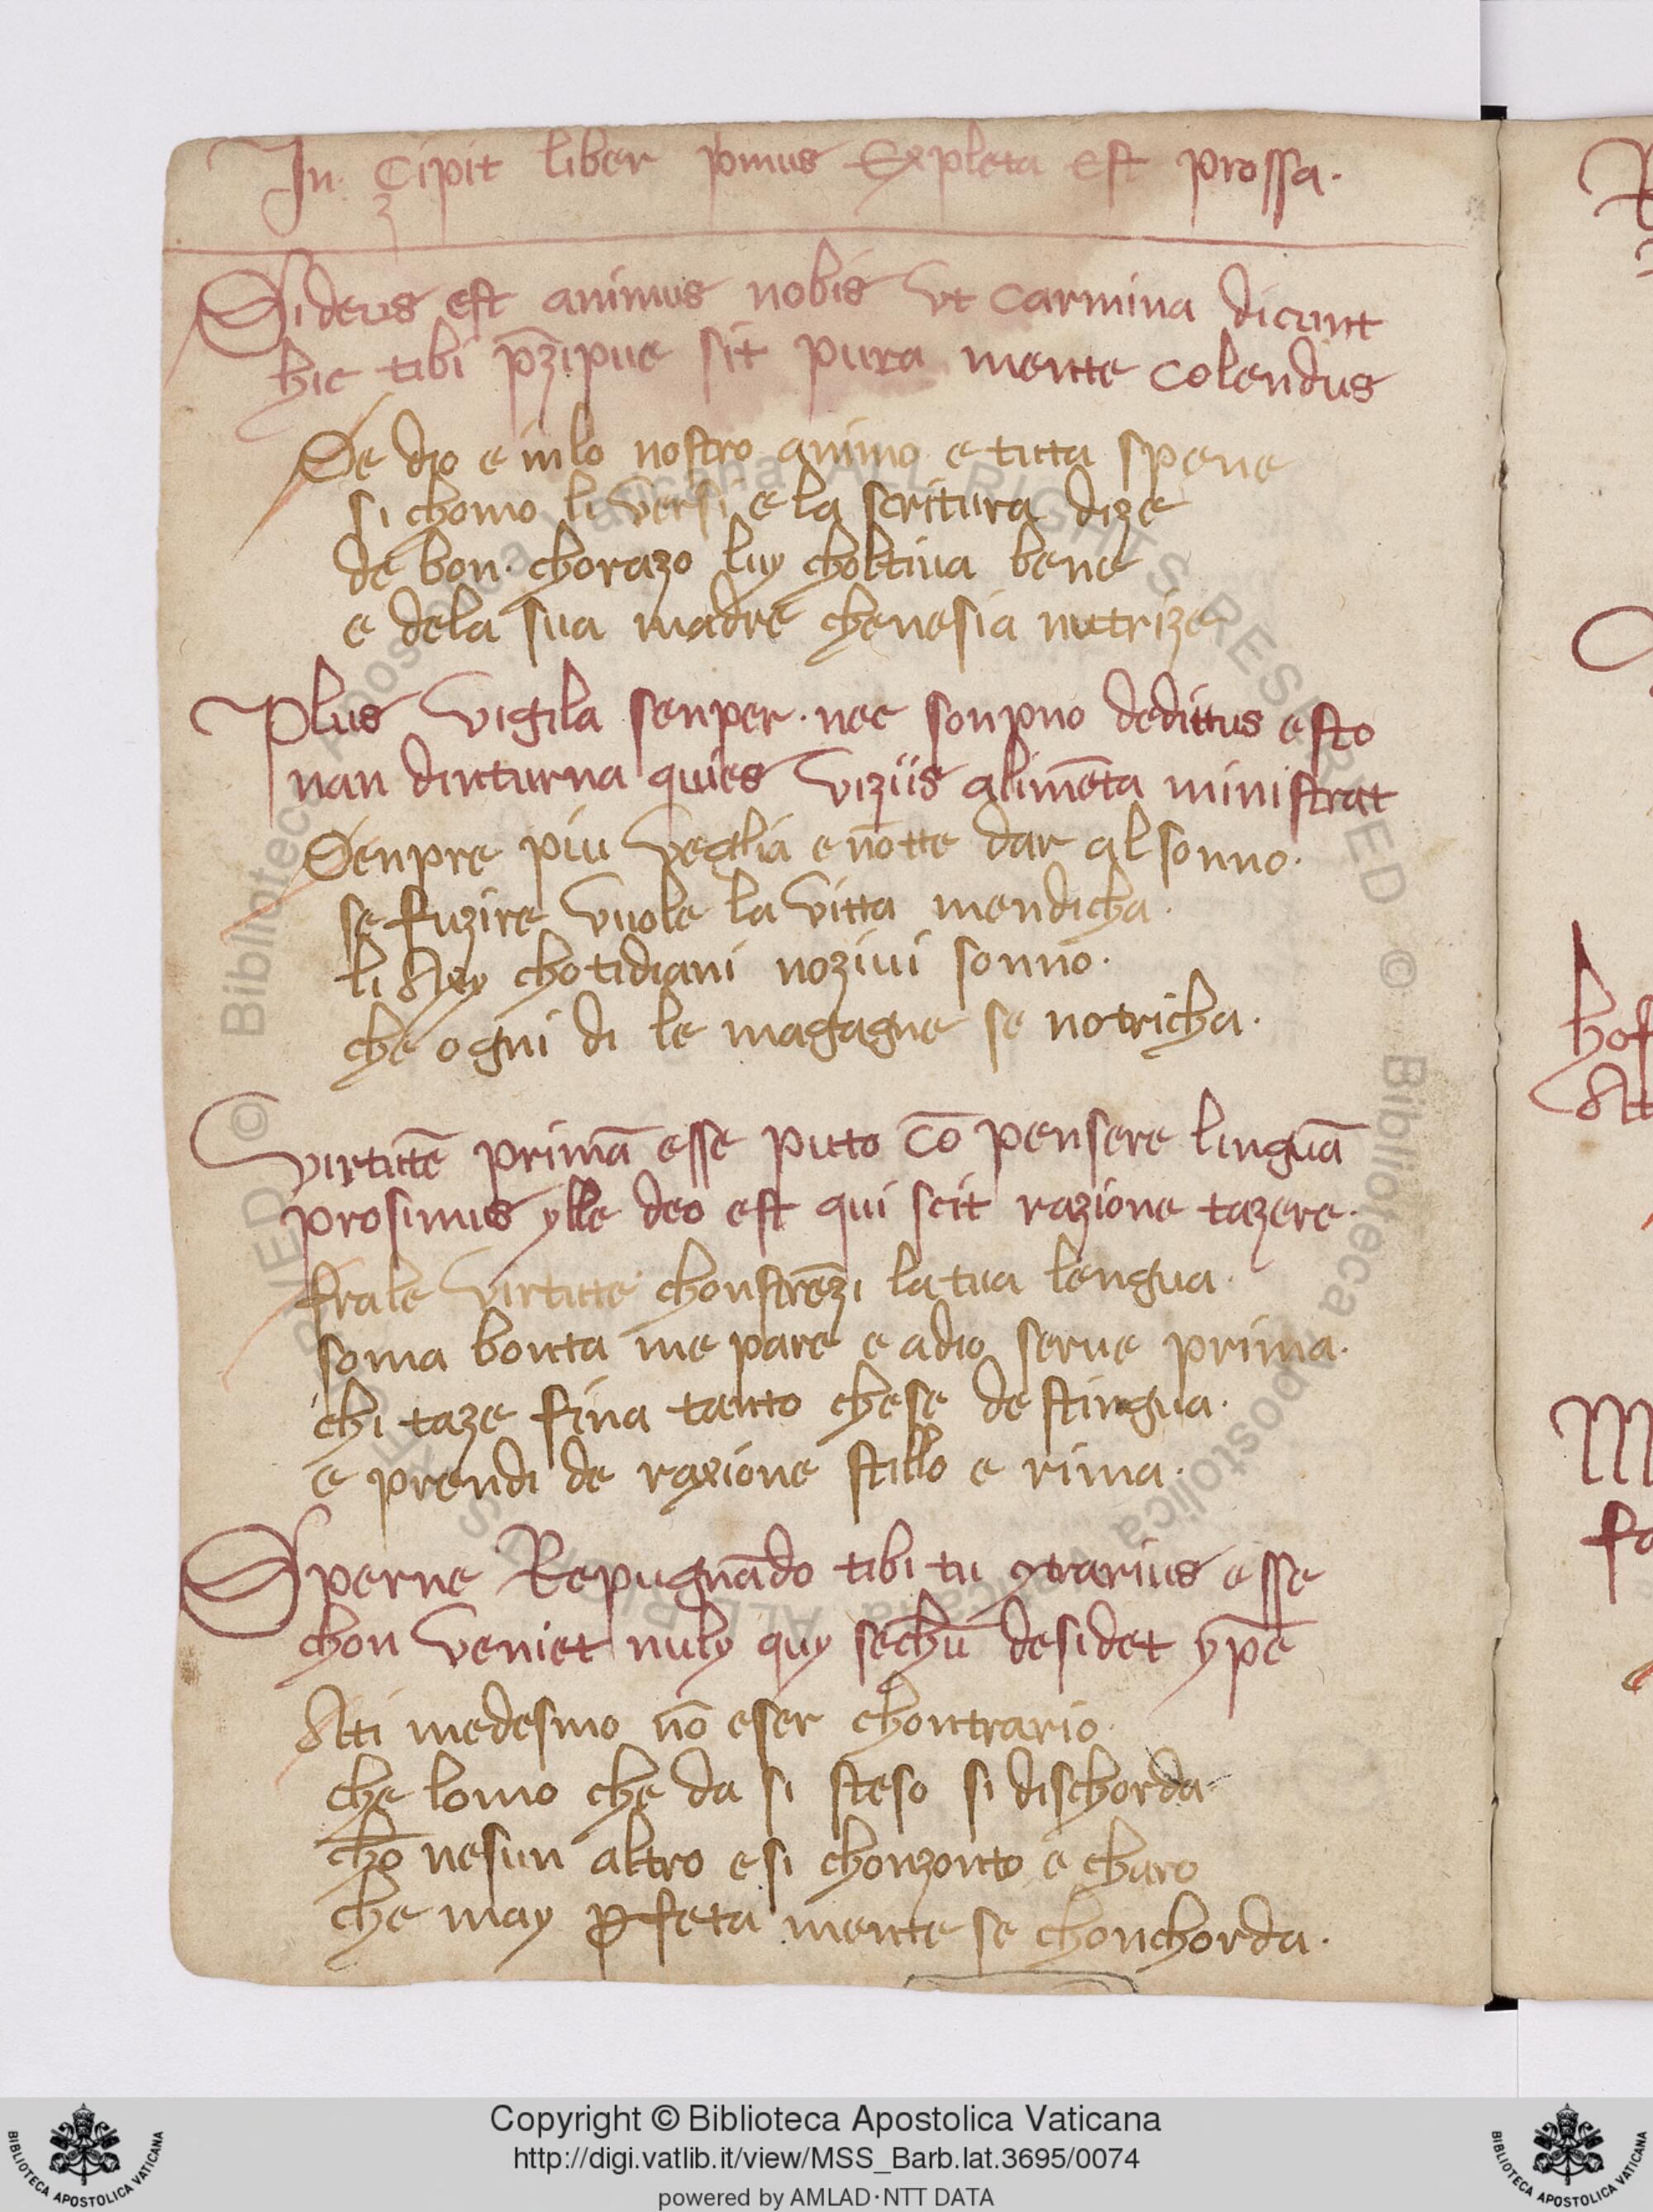 In Çipit liber pmus Expleta est prossa.
Sideus est animus nobis vt carmina dicunt
hic tibi p̄zipue sit pura mente colendus
Se dio e inlo nostro animo e tutta spene
si chomo li versi e la scritura dize
de bon. chorazo luy choltiua bene
e dela sua madre chenesia nutrize
Plus vigila senper. nec sonpno dedittus esto
nan dinturna quies viziis alimēta ministrat
Senpre piu veglia e nō tte dar al sonno.
se fuzire vuole la vitta mendicha.
li Axy chotidiani noziui sonno.
che ogni di le magagne se notricha.
Virtutē primā esse puto cō pensere linguā
prosimus ylle deo est qui scit razione tazere.
frale virtute chonstrēzi la tua lengua.
soma bonta me pare e adio serue prima.
chi taze fina tanto chese destingua.
e prendi de raxione stillo e rima.
Sperne Repugnādo tibi tu 9trarius esse
chon veniet nuly quy sechū desidet ypē
Ati medesmo nō eser chontrario.
che lomo che da si steso si dischorda
chō nesun altro e si chonzonto e charo
che may ꝑfeta mente se chonchorda.
Copyright © Biblioteca Apostolica Vaticana
http://digi.vatlib.it/view/MSS_Barb.lat.3695/0074
powered by AMLAD·NTT DATA